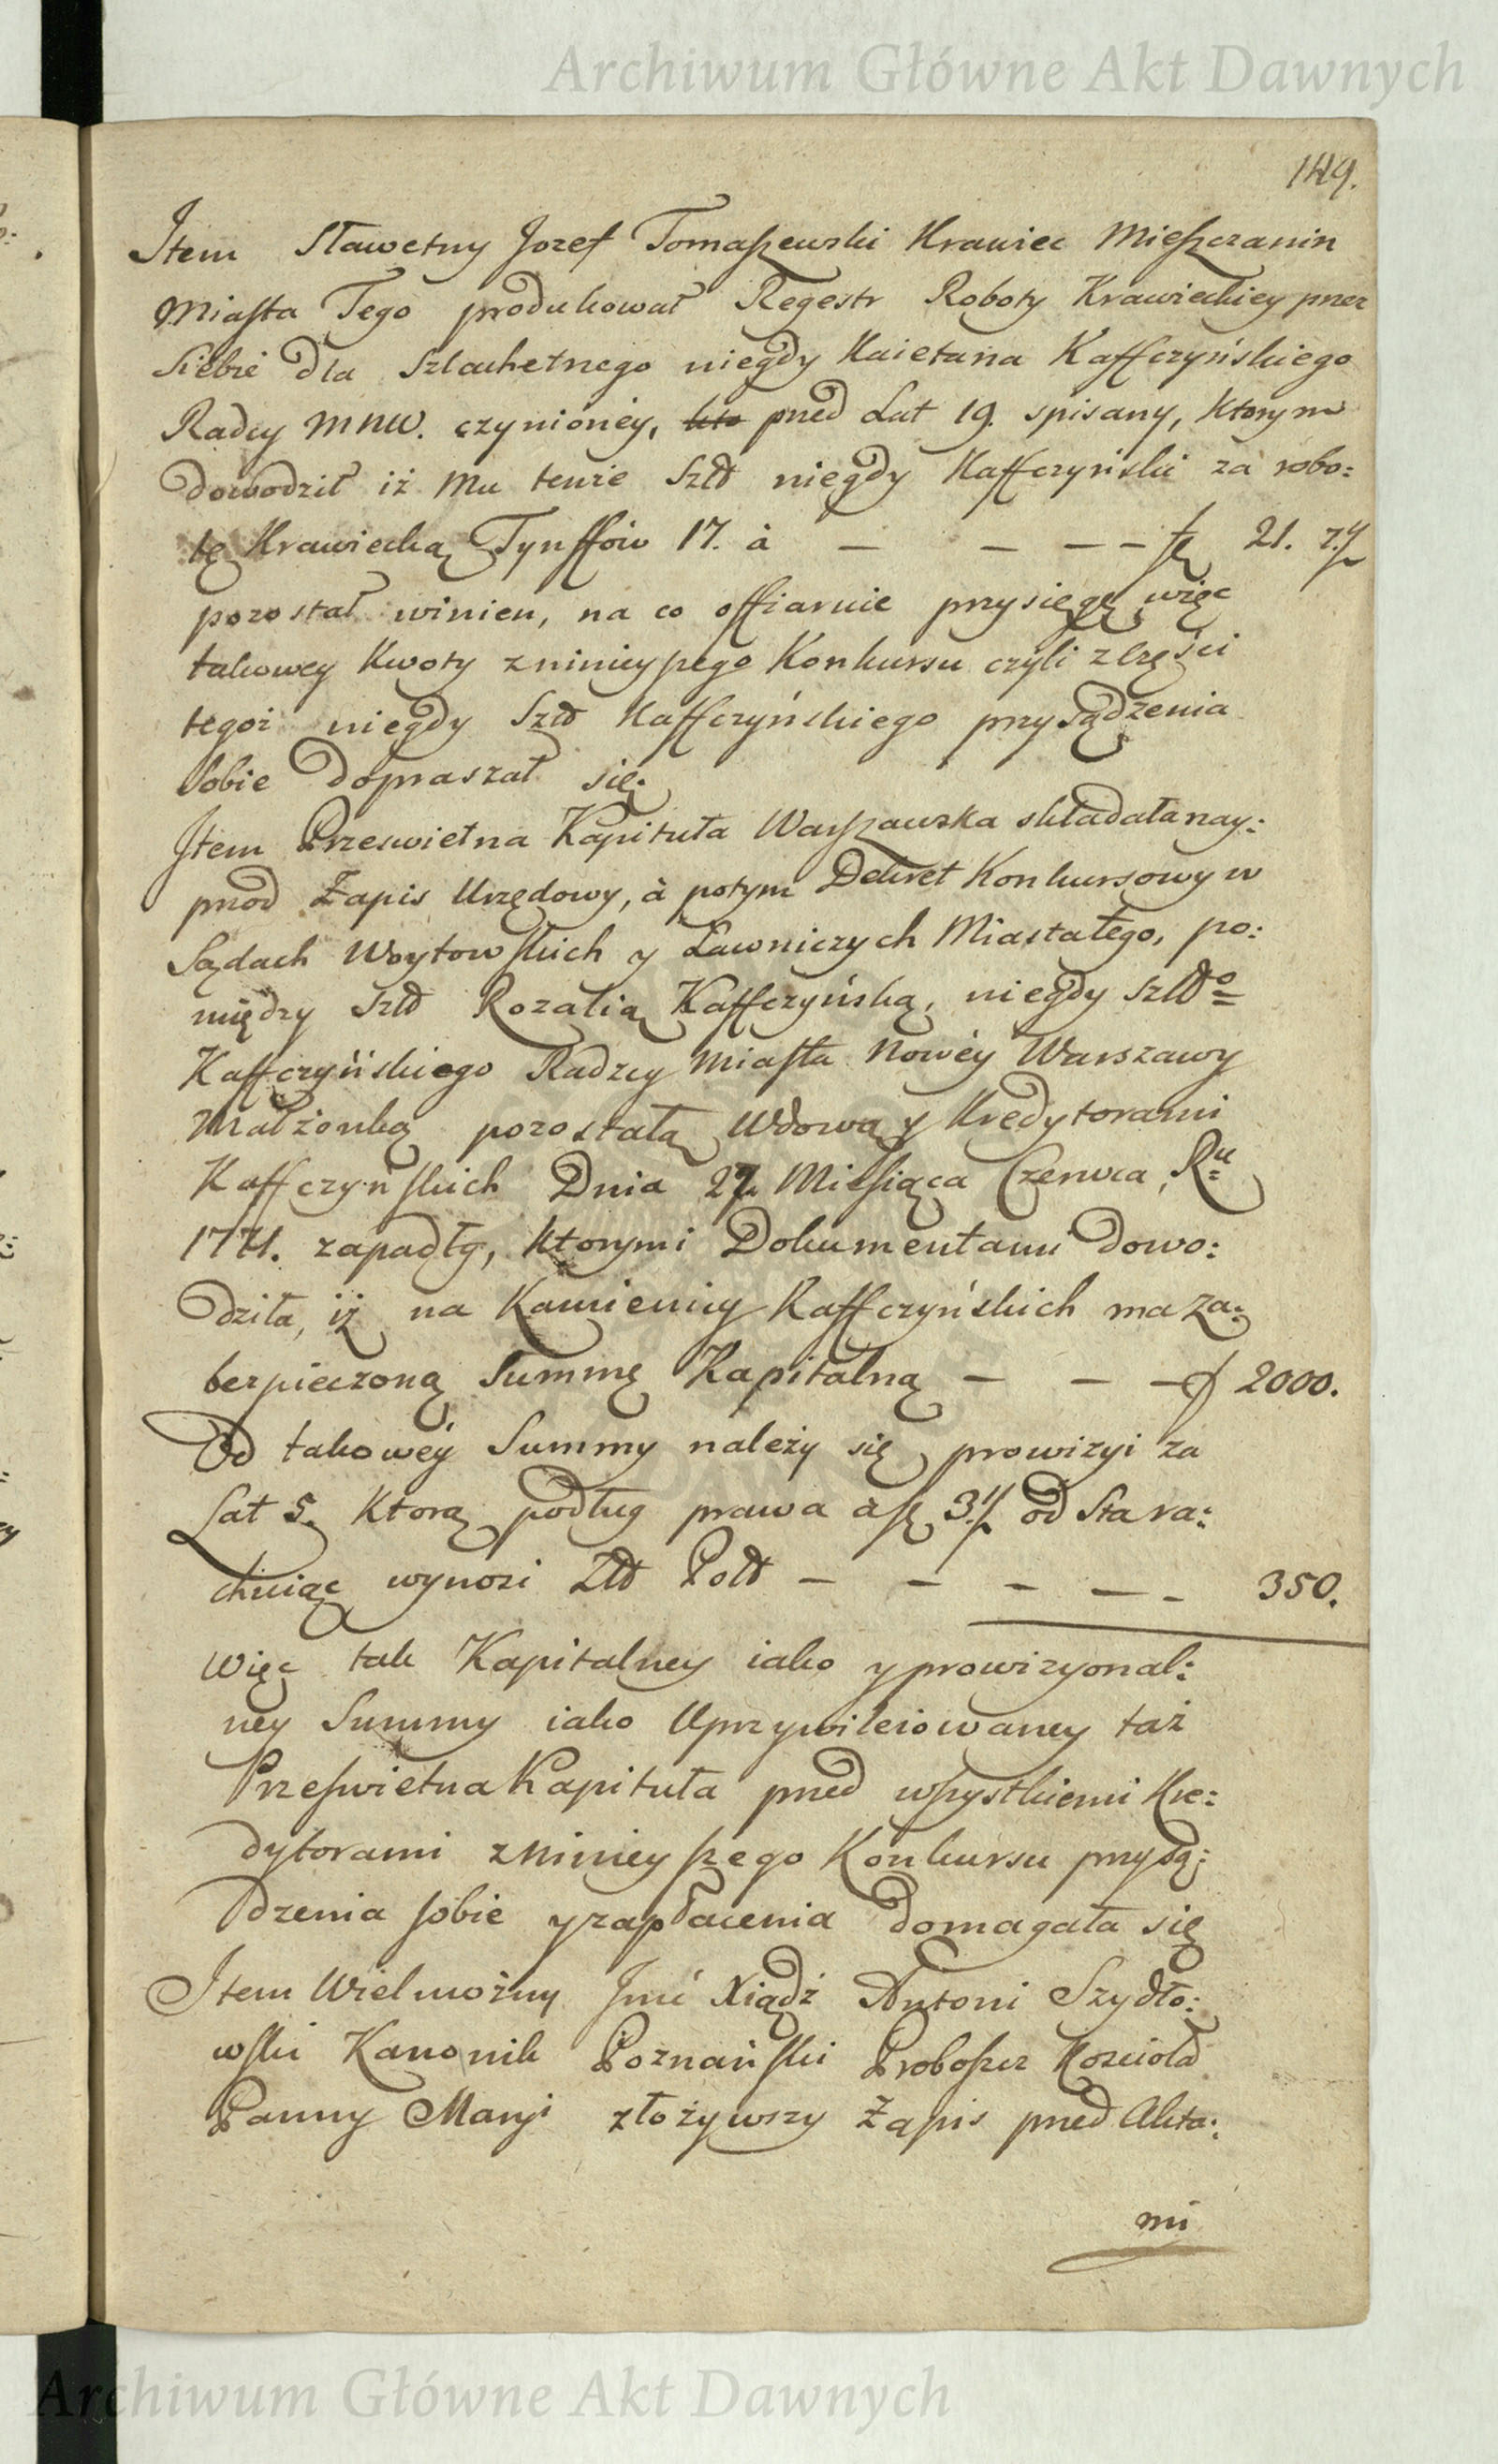 Archiwum Główne Akt Dawnych
149.
Item Sławetny Jozef Tomaszewski Krawiec Mieszczanin
Miasta Tego produkował Regestr Roboty Krawieckiey przez
Siebie dla Szlachetnego niegdy Kaietana Kaffczyńskiego
Radcy MNW. czynioney, przed Lat 19. spisany, ktorym
dowodził iż Mu tenże Szld niegdy Kaffczyński za robo:
tę Krawiecką Tynffow 17. à — — — — fl 21. 7.
pozostał winien, na co offiaruie przysięgę więc
takowey Kwoty z ninieyszego Konkursu czyli z Części
tegoż niegdy Szld Kaffczyńskiego przysądzenia
Sobie dopraszał się.
Item Przeswietna Kapituła Warszawska składała nay:
przod Zapis Urzędowy, à potym Dekret Konkursowy w
Sądach Woytowskich y Ławniczych Miasta tego, po:
między Szld Rozalią Kaffczyńską, niegdy Szldo
Kaffczyńskiego Radzcy Miasta Nowéy Warszawy
Małżonką pozostałą Wdową y Kredytorami
Kaffczyńskich Dnia 27 Miesiąca Czerwca, Ru
1771. zapadły, ktorymi Dokumentami dowo:
dziła, iż na Kamienicy Kaffczyńskich ma za:
bezpieczoną Summę Kapitalną — — — 2000.
Od takowéy Summy należy się prowizyi za
Lat 5. Ktorą podług prawa à 3. od Sta ra:
chuiąc wynosi Złd Pold — — — — - 350.
Więc tak Kapitalney iako y prowizyonal:
ney Summy iako Uprzywileiowaney taż
Przeswietna Kapituła przed wszystkiemi Kre:
dytorami z ninieyszego Konkursu przysą:
dzenia sobie y zapłacenia domagała się
Item Wielmożny Jmć Xiądz Antoni Szydło:
wski Kanonik Poznański Proboszcz Kościoła
Panny Maryi złożywszy Zapis przed Akta:
mi
Archiwum Główne Akt Dawnych